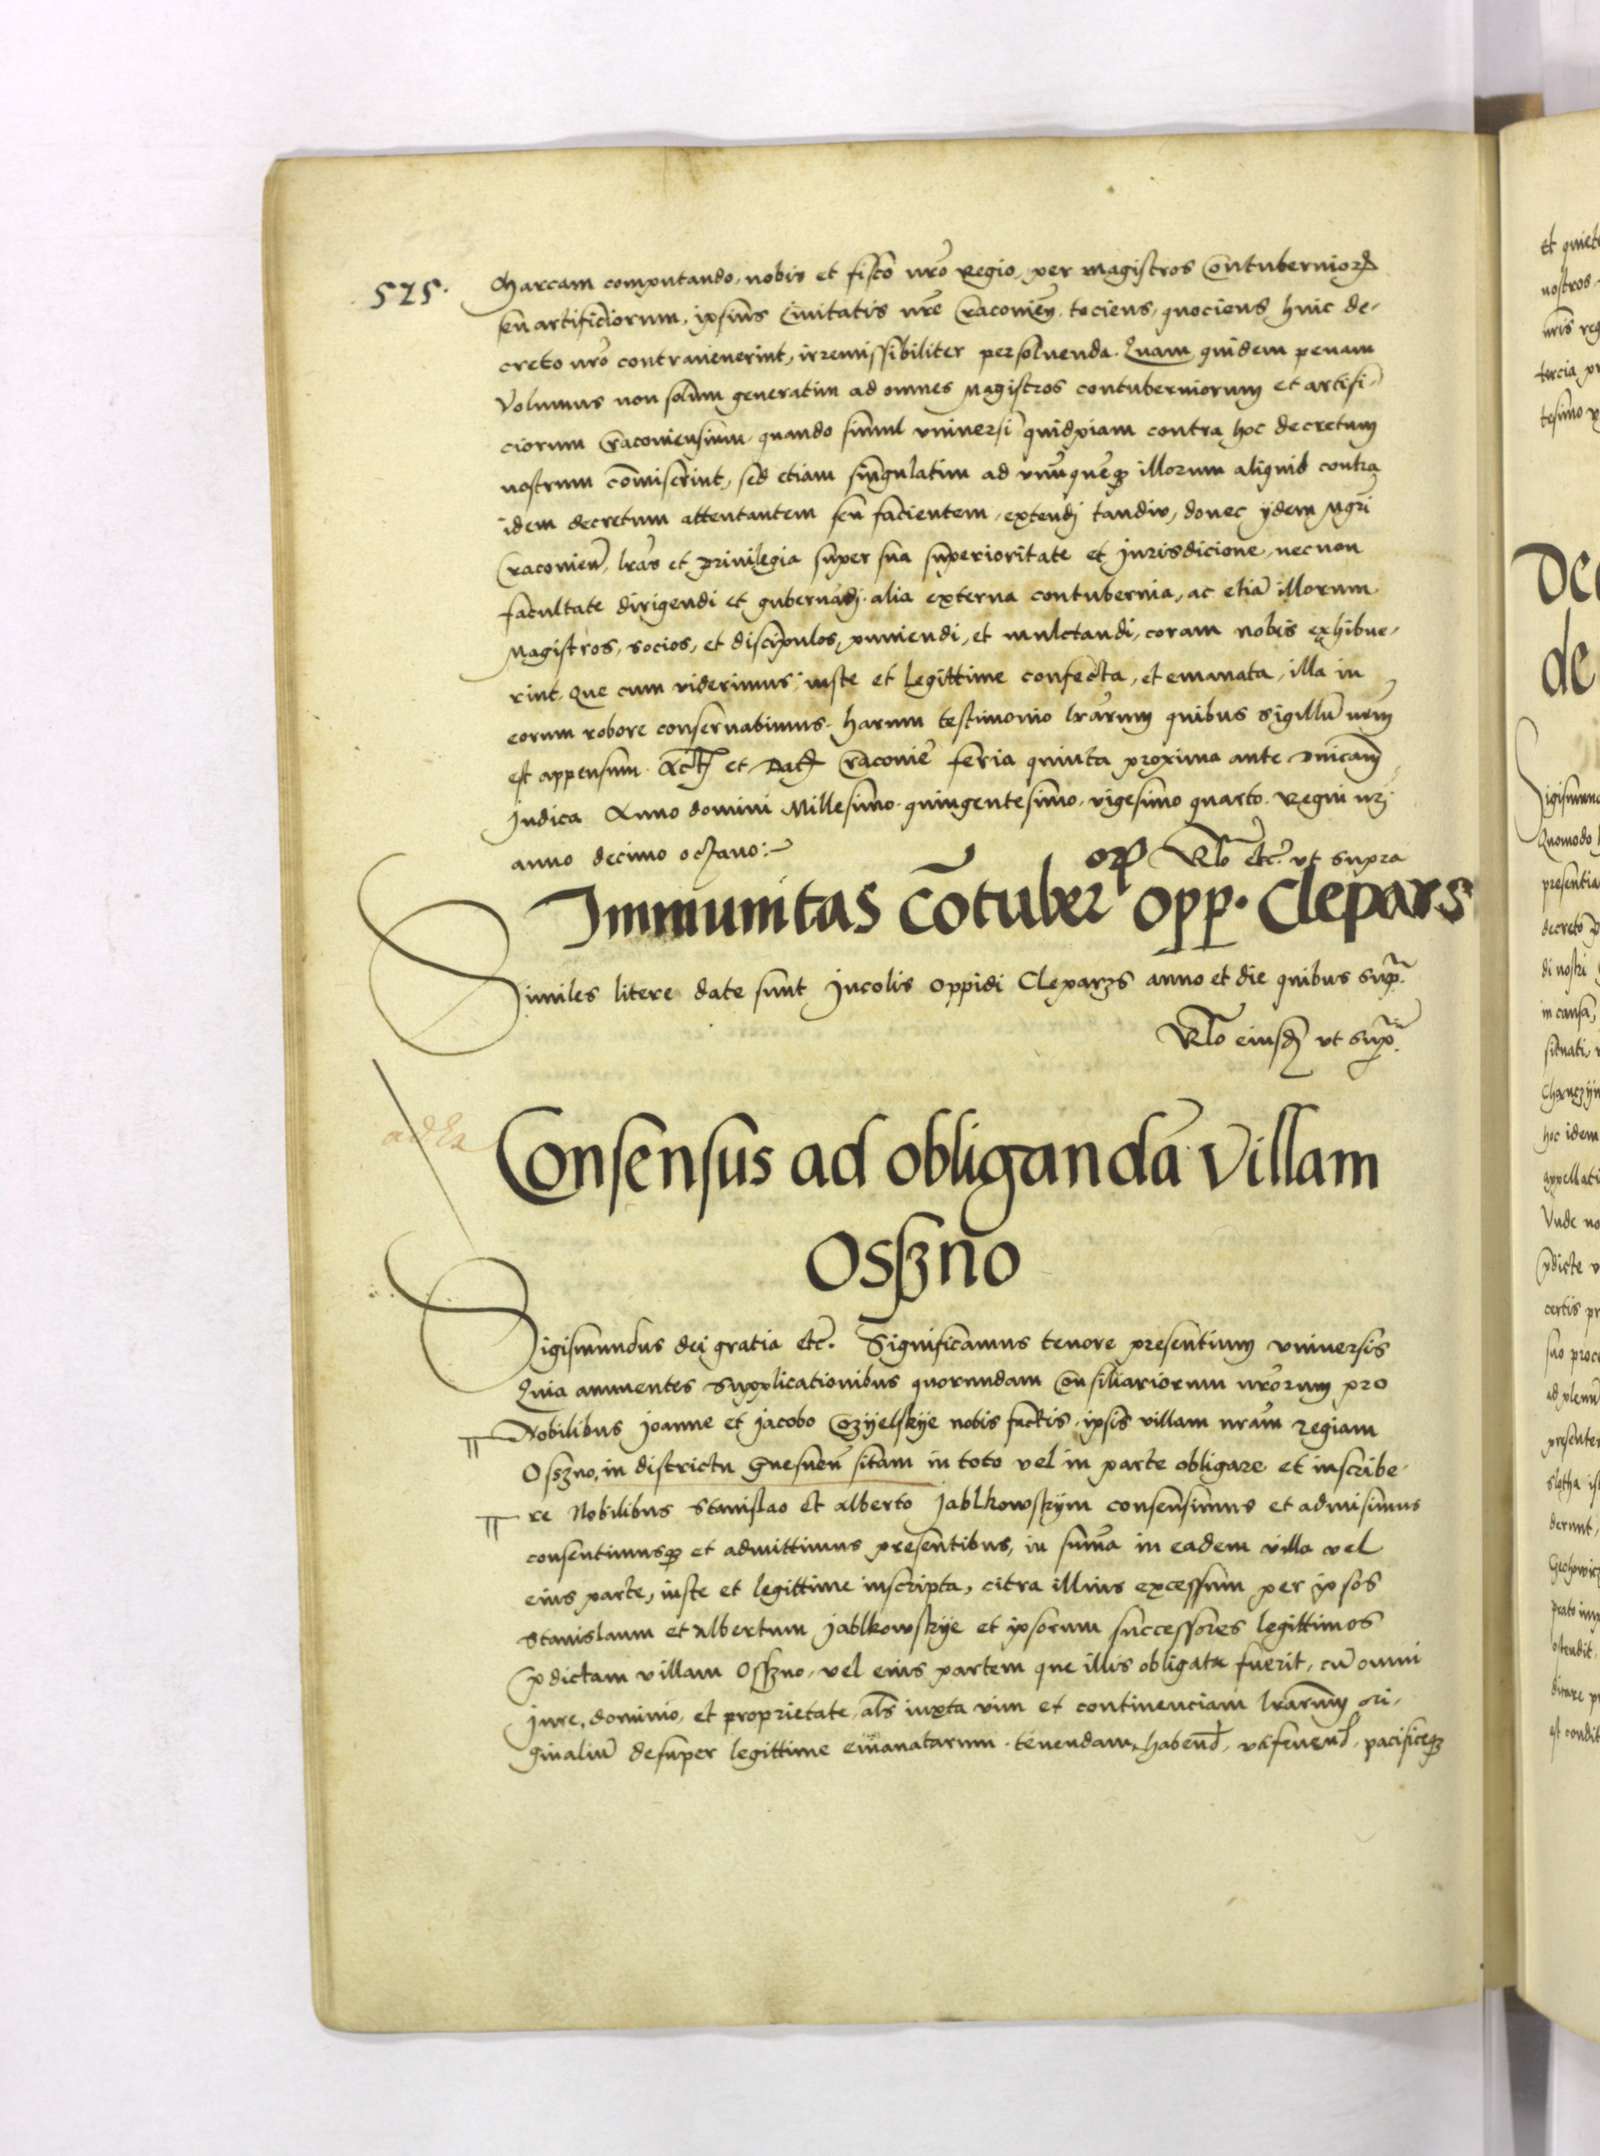 525.
Marcam computando, nobis et fisco nrō Regio, per magistros Contuberniorꝝ
seu artificiorum, ipsius Civitatis nrē Cracovień, tociens, quociens huic de-
creto nrō contravenerint, irremissibiliter persolvenda. Quam quidem penam
Volumus non solum generatim ad omnes Magistros contuberniorum et artifi-
ciorum Cracoviensium, quando simul universi quidpiam contra hoc decretum
nostrum cōmiserint, sed etiam singulatim ad unūquēqꝫ illorum aliquid contra
idem decretum attentantem seu facientem, extendj tandiu, donec ÿdem Mgrī
Cracovień, lrās et privilegia super sua superioritate et Jurisdicione, necnon
facultate dirigendi et gubernādj alia externa contubernia, ac etiā illorum
Magistros, socios, et discipulos, puniendi, et mulctandi, coram nobis exhibue-
rint, Que cum viderimus, iuste et legittime confecta, et emanata, illa in
eorum robore conservabimus. Harum testimonio lrārum quibus sigillū nrm̄
est appensum. Actꝭ et Datꝭ Cracovie feria quinta proxima ante Dn̄icam
Judica Anno domini Millesimo quingentesimo, vigesimo quarto. Regni nrj
anno decimo octavo:~
Rlō etc. ut supra
Immunitas cōtuber orꝝ opp. Clepars
Similes litere date sunt Jncolis oppidi Cleparzs anno et die quibus supr̄.
Rlō eiusdꝫ ut supr̄.
Consensus ad obligandā Villam
Osszno
Sigismundus dei gratia etc. Significamus tenore presentium universis
Quia annuentes supplicationibus quorundam Consiliariorum nrōrum pro
Nobilibus Joanne et Jacobo Cozÿelskÿe nobis factis, ipsis villam nrām regiam
Osszno, in districtu Gnesneń sitam in toto vel in parte obligare et inscribe-
re Nobilibus Stanislao et Alberto Jablkowskÿm consensimus et admisimus
consentimusqꝫ et admittimus presentibus, in sum̄a in eadem villa vel
eius parte, iuste et legittime inscripta, citra illius excessum per ipsos
Stanislaum et Albertum Jablkowskÿe et ipsorum successores legittimos
p̄dictam villam Osszno, vel eius partem que illis obligata fuerit, cū omni
Jure, dominio, et proprietate, als̄ iuxta vim et continenciam lrārum ori-
ginaliū desuper legittime emanatarum, tenendam, habend̄, utifruend̄, pacificeqꝫ